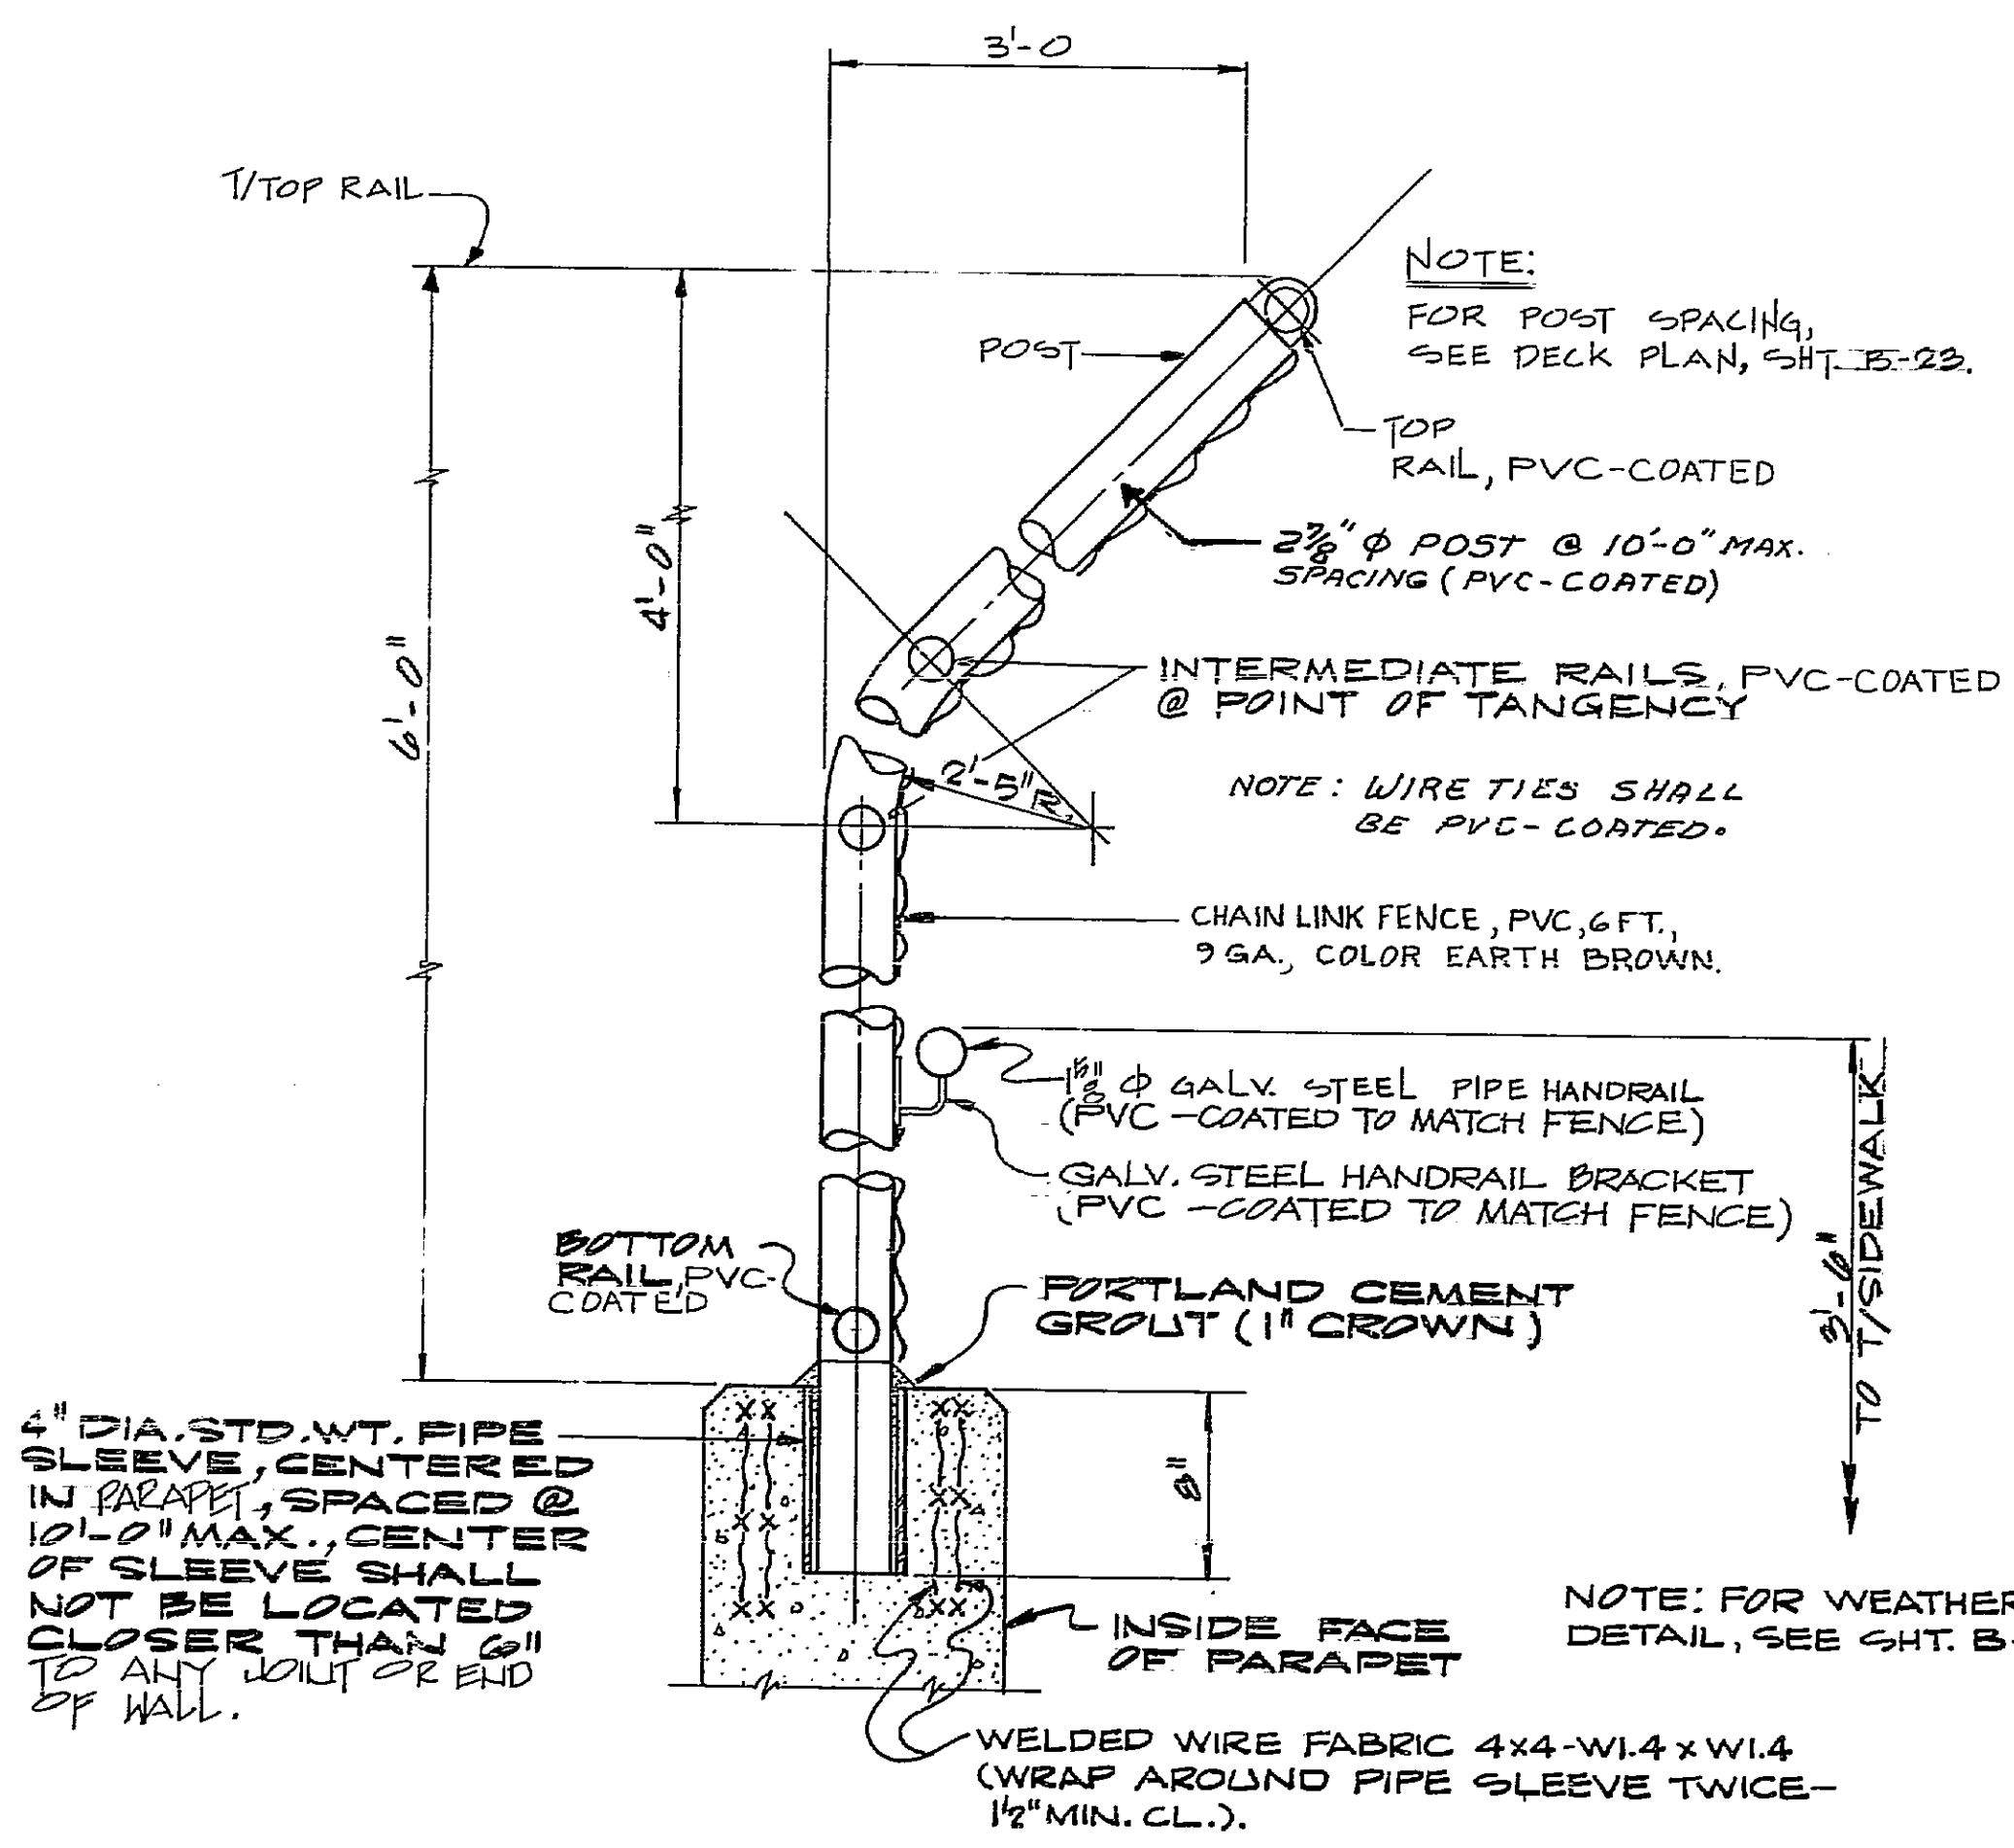 3'-0
T/TOP RAIL
NOTE:
FOR POST SPACING,
SEE DECK PLAN, SHT. B-23.
POST
TOP
RAIL, PVC-COATED
2⅞" Φ POST @ 10'-0" MAX.
SPACING (PVC-COATED)
4'-0"
6'-0"
INTERMEDIATE RAILS, PVC-COATED
@ POINT OF TANGENCY
2'-5" R.
NOTE: WIRE TIES SHALL
BE PVC-COATED.
CHAIN LINK FENCE, PVC, 6 FT.,
9 GA., COLOR EARTH BROWN.
1⅝" Φ GALV. STEEL PIPE HANDRAIL
(PVC -COATED TO MATCH FENCE)
GALV. STEEL HANDRAIL BRACKET
(PVC -COATED TO MATCH FENCE)
3'-6"
TO T/SIDEWALK
BOTTOM
RAIL, PVC-
COATED
PORTLAND CEMENT
GROUT (1" CROWN)
4" DIA. STD. WT. PIPE
SLEEVE, CENTERED
IN PARAPET, SPACED @
10'-0" MAX., CENTER
OF SLEEVE SHALL
NOT BE LOCATED
CLOSER THAN 6"
TO ANY JOINT OR END
OF WALL.
8"
INSIDE FACE
OF PARAPET
NOTE: FOR WEATHER
DETAIL, SEE SHT. B-
WELDED WIRE FABRIC 4x4-W1.4 x W1.4
(WRAP AROUND PIPE SLEEVE TWICE-
1½" MIN. CL.).